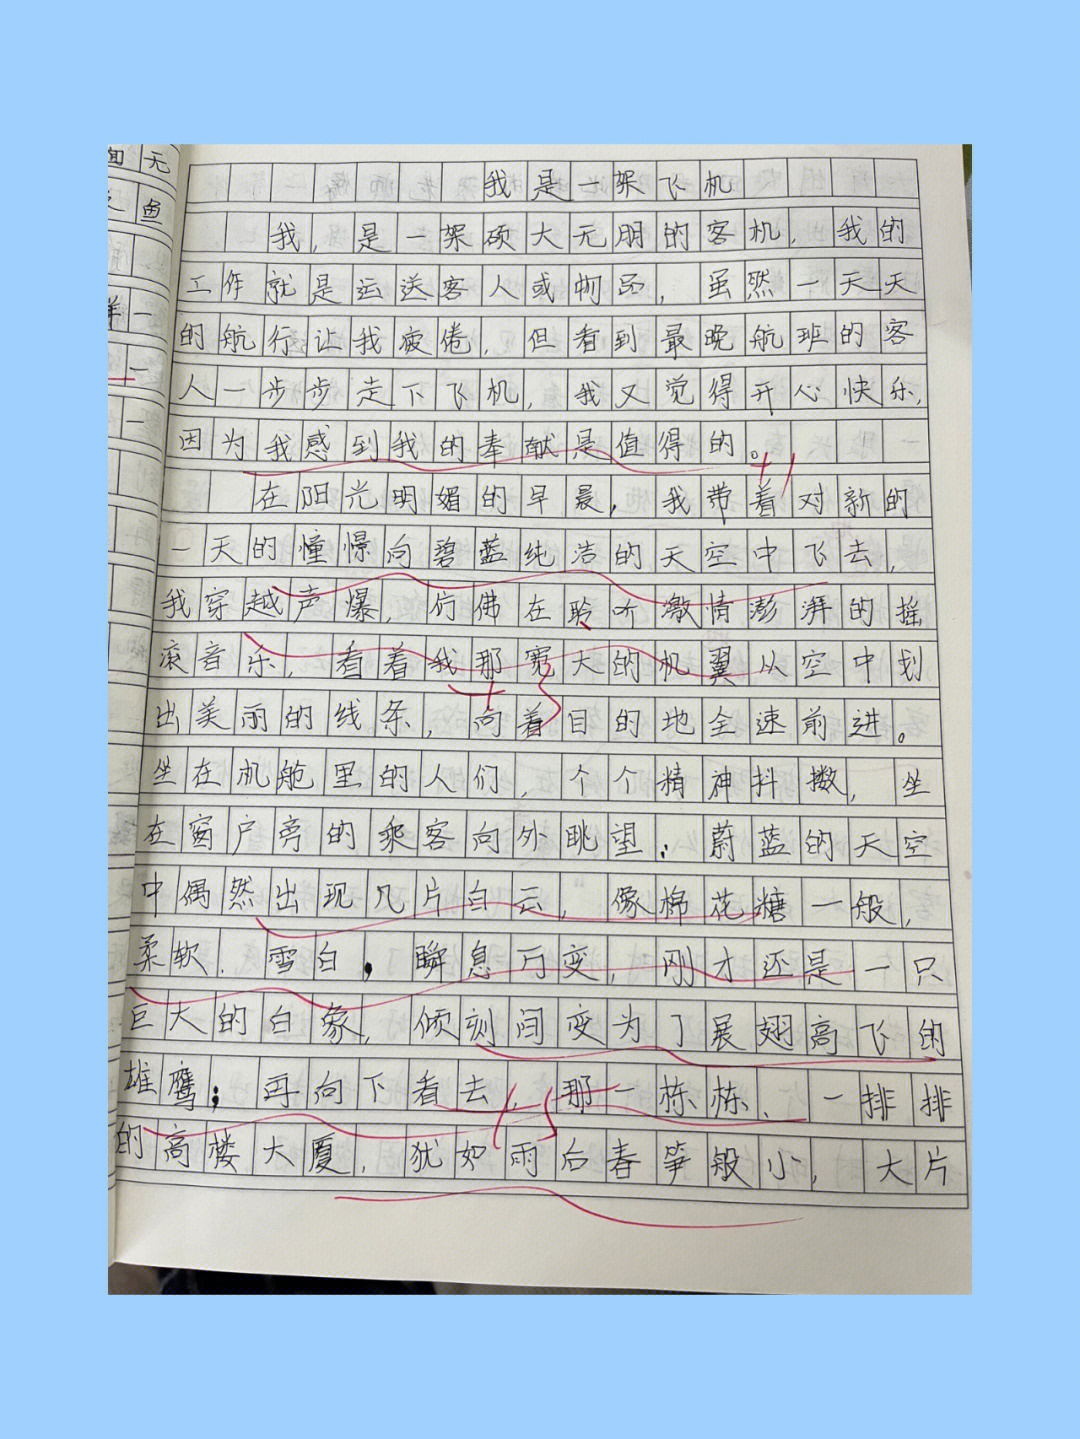 我是一架飞机
我，是一架硕大无朋的客机，我的
工作就是运送客人或物品，虽然一天天
的航行让我疲倦，但看到最晚航班的客
人一步步走下飞机，我又觉得开心快乐，
因为我感到我的奉献是值得的。
在阳光明媚的早晨，我带着对新的
一天的憧憬向碧蓝纯洁的天空中飞去，
我穿越声爆，仿佛在聆听激情澎湃的摇
滚音乐，看着我那宽大的机翼从空中划
出美丽的线条，向着目的地全速前进。
坐在机舱里的人们，个个精神抖擞，坐
在窗户旁的乘客向外眺望：蔚蓝的天空
中偶然出现几片白云，像棉花糖一般，
柔软、雪白，瞬息万变，刚才还是一只
巨大的白象，倾刻间变为了展翅高飞的
雄鹰；再向下看去，那一栋栋、一排排
的高楼大厦，犹如雨后春笋般小，大片